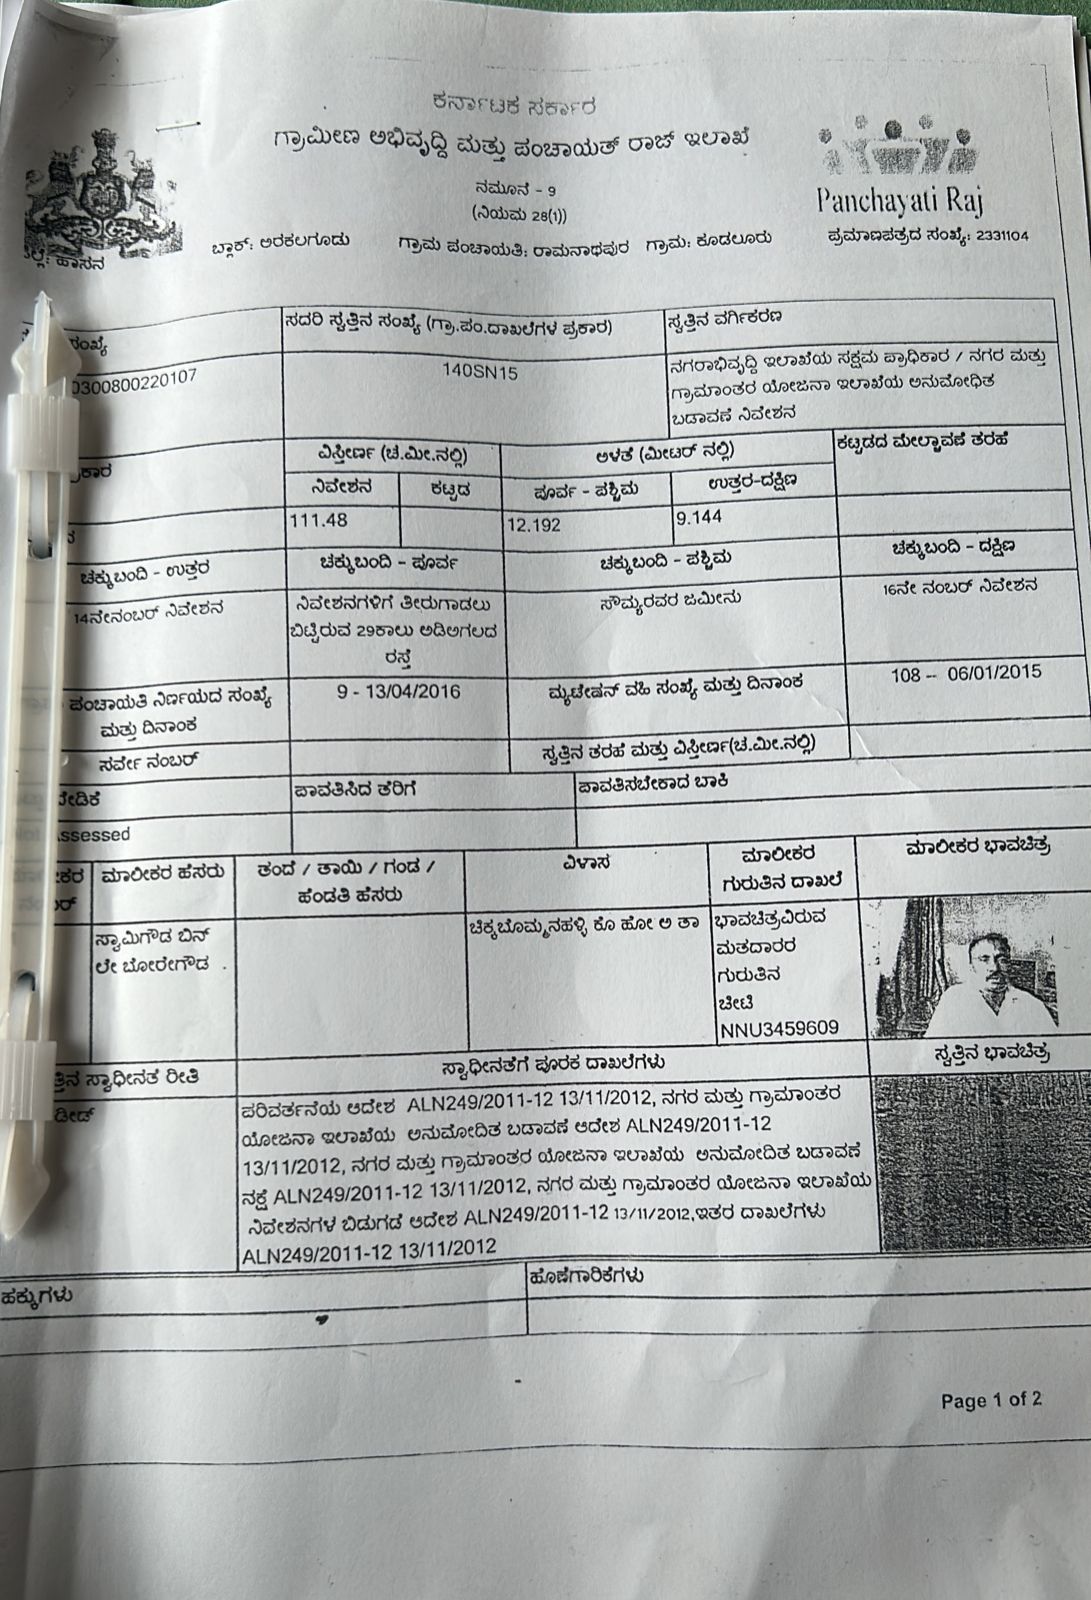 ಕರ್ನಾಟಕ ಸರ್ಕಾರ
ಗ್ರಾಮೀಣ ಅಭಿವೃದ್ಧಿ ಮತ್ತು ಪಂಚಾಯತ್ ರಾಜ್ ಇಲಾಖೆ
ನಮೂನ - 9
(ನಿಯಮ 28(1))
Panchayati Raj
ಬ್ಲಾಕ್: ಅರಕಲಗೂಡು ಗ್ರಾಮ ಪಂಚಾಯತಿ: ರಾಮನಾಥಪುರ ಗ್ರಾಮ: ಕೂಡಲೂರು ಪ್ರಮಾಣಪತ್ರದ ಸಂಖ್ಯೆ: 2331104
ಹಾಸನ
ಸಂಖ್ಯೆ ಸದರಿ ಸ್ವತ್ತಿನ ಸಂಖ್ಯೆ (ಗ್ರಾ.ಪಂ.ದಾಖಲೆಗಳ ಪ್ರಕಾರ) ಸ್ವತ್ತಿನ ವರ್ಗೀಕರಣ
0300800220107 140SN15 ನಗರಾಭಿವೃದ್ಧಿ ಇಲಾಖೆಯ ಸಕ್ಷಮ ಪ್ರಾಧಿಕಾರ / ನಗರ ಮತ್ತು
ಗ್ರಾಮಾಂತರ ಯೋಜನಾ ಇಲಾಖೆಯ ಅನುಮೋಧಿತ
ಬಡಾವಣೆ ನಿವೇಶನ
ವಿಸ್ತೀರ್ಣ (ಚ.ಮೀ.ನಲ್ಲಿ) ಅಳತೆ (ಮೀಟರ್ ನಲ್ಲಿ) ಕಟ್ಟಡದ ಮೇಲ್ಚಾವಣೆ ತರಹೆ
ನಿವೇಶನ ಕಟ್ಟಡ ಪೂರ್ವ - ಪಶ್ಚಿಮ ಉತ್ತರ-ದಕ್ಷಿಣ
111.48 12.192 9.144
ಚಕ್ಕುಬಂದಿ - ಉತ್ತರ ಚಕ್ಕುಬಂದಿ - ಪೂರ್ವ ಚಕ್ಕುಬಂದಿ - ಪಶ್ಚಿಮ ಚಕ್ಕುಬಂದಿ - ದಕ್ಷಿಣ
14ನೇನಂಬರ್ ನಿವೇಶನ ನಿವೇಶನಗಳಿಗೆ ತೀರುಗಾಡಲು ಸೌಮ್ಯರವರ ಜಮೀನು 16ನೇ ನಂಬರ್ ನಿವೇಶನ
ಬಿಟ್ಟಿರುವ 29ಕಾಲು ಅಡಿಅಗಲದ
ರಸ್ತೆ
ಪಂಚಾಯತಿ ನಿರ್ಣಯದ ಸಂಖ್ಯೆ 9 - 13/04/2016 ಮ್ಯುಟೇಷನ್ ವಹಿ ಸಂಖ್ಯೆ ಮತ್ತು ದಿನಾಂಕ 108 -- 06/01/2015
ಮತ್ತು ದಿನಾಂಕ
ಸರ್ವೇ ನಂಬರ್ ಸ್ವತ್ತಿನ ತರಹೆ ಮತ್ತು ವಿಸ್ತೀರ್ಣ(ಚ.ಮೀ.ನಲ್ಲಿ)
ಪಾವತಿಸಿದ ತೆರಿಗೆ ಪಾವತಿಸಬೇಕಾದ ಬಾಕಿ
Assessed
ಮಾಲೀಕರ ಹೆಸರು ತಂದೆ / ತಾಯಿ / ಗಂಡ / ವಿಳಾಸ ಮಾಲೀಕರ ಮಾಲೀಕರ ಭಾವಚಿತ್ರ
ಹೆಂಡತಿ ಹೆಸರು ಗುರುತಿನ ದಾಖಲೆ
ಸ್ವಾಮಿಗೌಡ ಬಿನ್ ಚಿಕ್ಕಬೊಮ್ಮನಹಳ್ಳಿ ಕೊ ಹೋ ಅ ತಾ ಭಾವಚಿತ್ರವಿರುವ
ಲೇ ಬೋರೇಗೌಡ . ಮತದಾರರ
ಗುರುತಿನ
ಚೀಟಿ
NNU3459609
ಸ್ವಾಧೀನತೆ ರೀತಿ ಸ್ವಾಧೀನತೆಗೆ ಪೂರಕ ದಾಖಲೆಗಳು ಸ್ವತ್ತಿನ ಭಾವಚಿತ್ರ
ಡೀಡ್ ಪರಿವರ್ತನೆಯ ಆದೇಶ ALN249/2011-12 13/11/2012, ನಗರ ಮತ್ತು ಗ್ರಾಮಾಂತರ
ಯೋಜನಾ ಇಲಾಖೆಯ ಅನುಮೋದಿತ ಬಡಾವಣೆ ಆದೇಶ ALN249/2011-12
13/11/2012, ನಗರ ಮತ್ತು ಗ್ರಾಮಾಂತರ ಯೋಜನಾ ಇಲಾಖೆಯ ಅನುಮೋದಿತ ಬಡಾವಣೆ
ನಕ್ಷೆ ALN249/2011-12 13/11/2012, ನಗರ ಮತ್ತು ಗ್ರಾಮಾಂತರ ಯೋಜನಾ ಇಲಾಖೆಯ
ನಿವೇಶನಗಳ ಬಿಡುಗಡೆ ಆದೇಶ ALN249/2011-12 13/11/2012,ಇತರ ದಾಖಲೆಗಳು
ALN249/2011-12 13/11/2012
ಹಕ್ಕುಗಳು ಹೊಣೆಗಾರಿಕೆಗಳು
Page 1 of 2